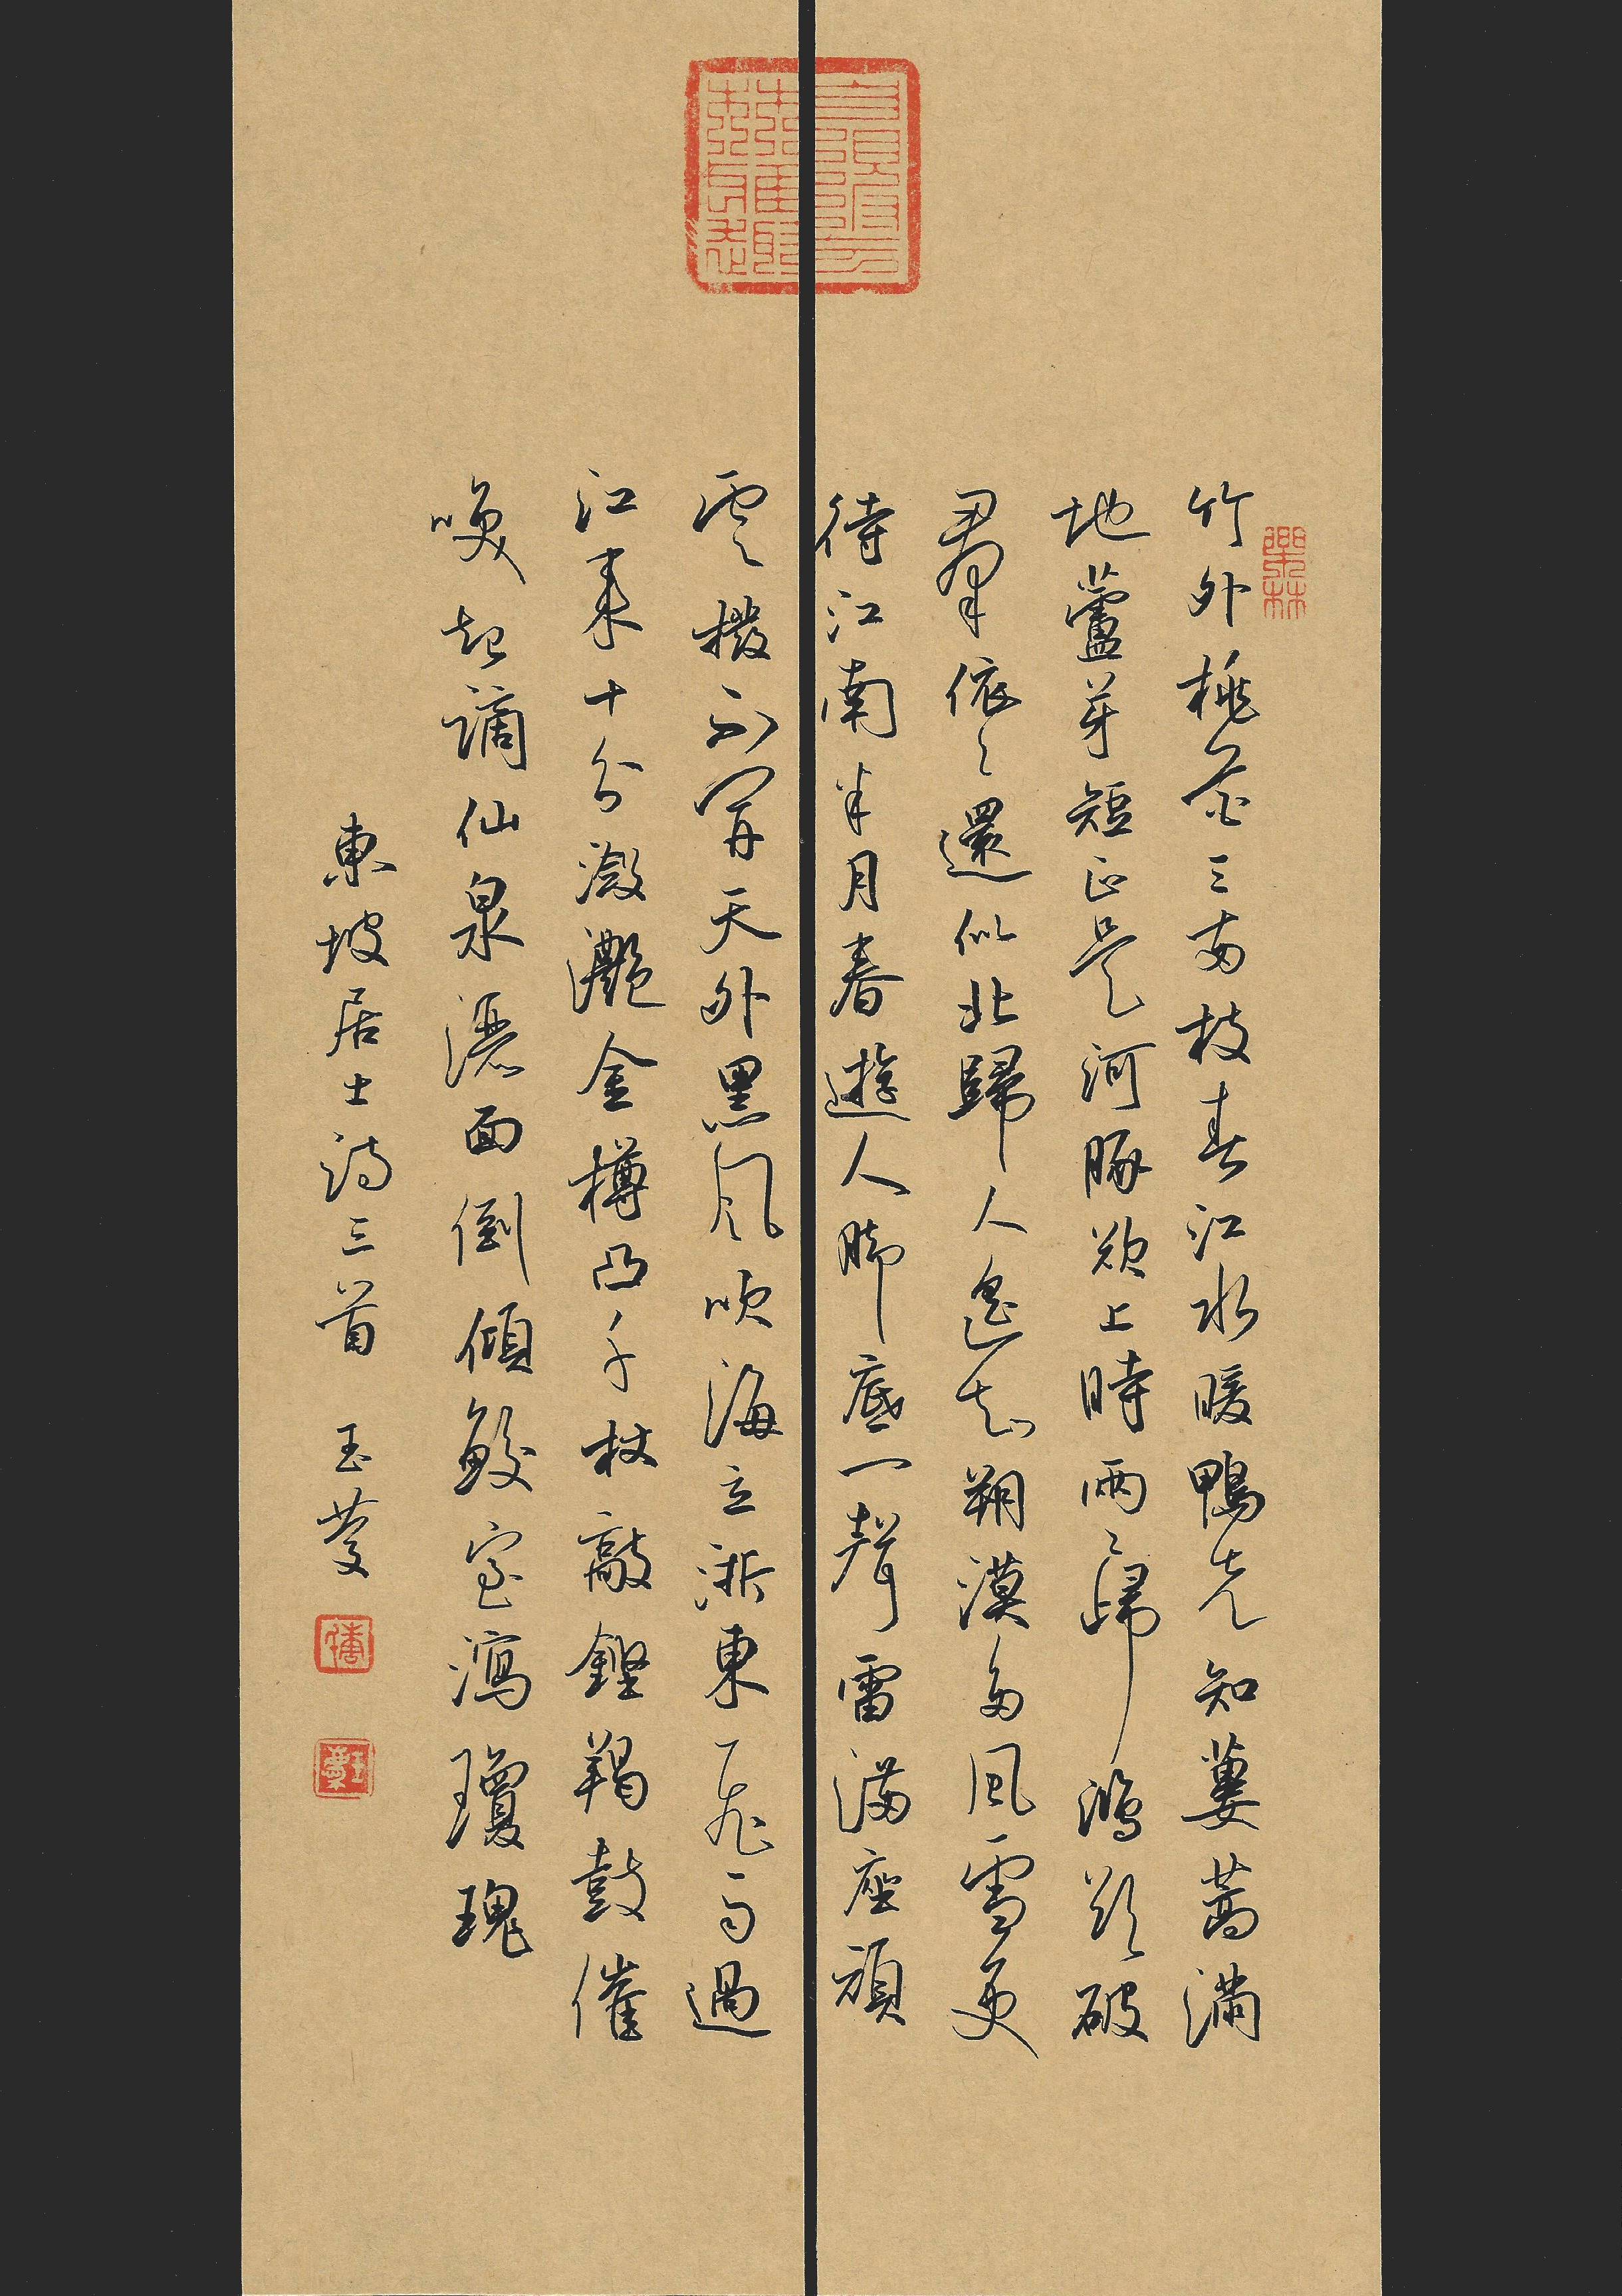 竹外桃花三兩枝春江水暖鴨先知蔞蒿滿
地蘆芽短正是河豚欲上時兩兩歸鴻欲破
群依依還似北歸人遙知朔漠多風雪更
待江南半月春遊人腳底一聲雷滿座頑
雲撥不開天外黑風吹海立浙東飛雨過
江來十分瀲灧金樽凸千杖敲鏗羯鼓催
喚起謫仙泉灑面倒傾鮫室瀉瓊瑰
東坡居士詩三首 玉